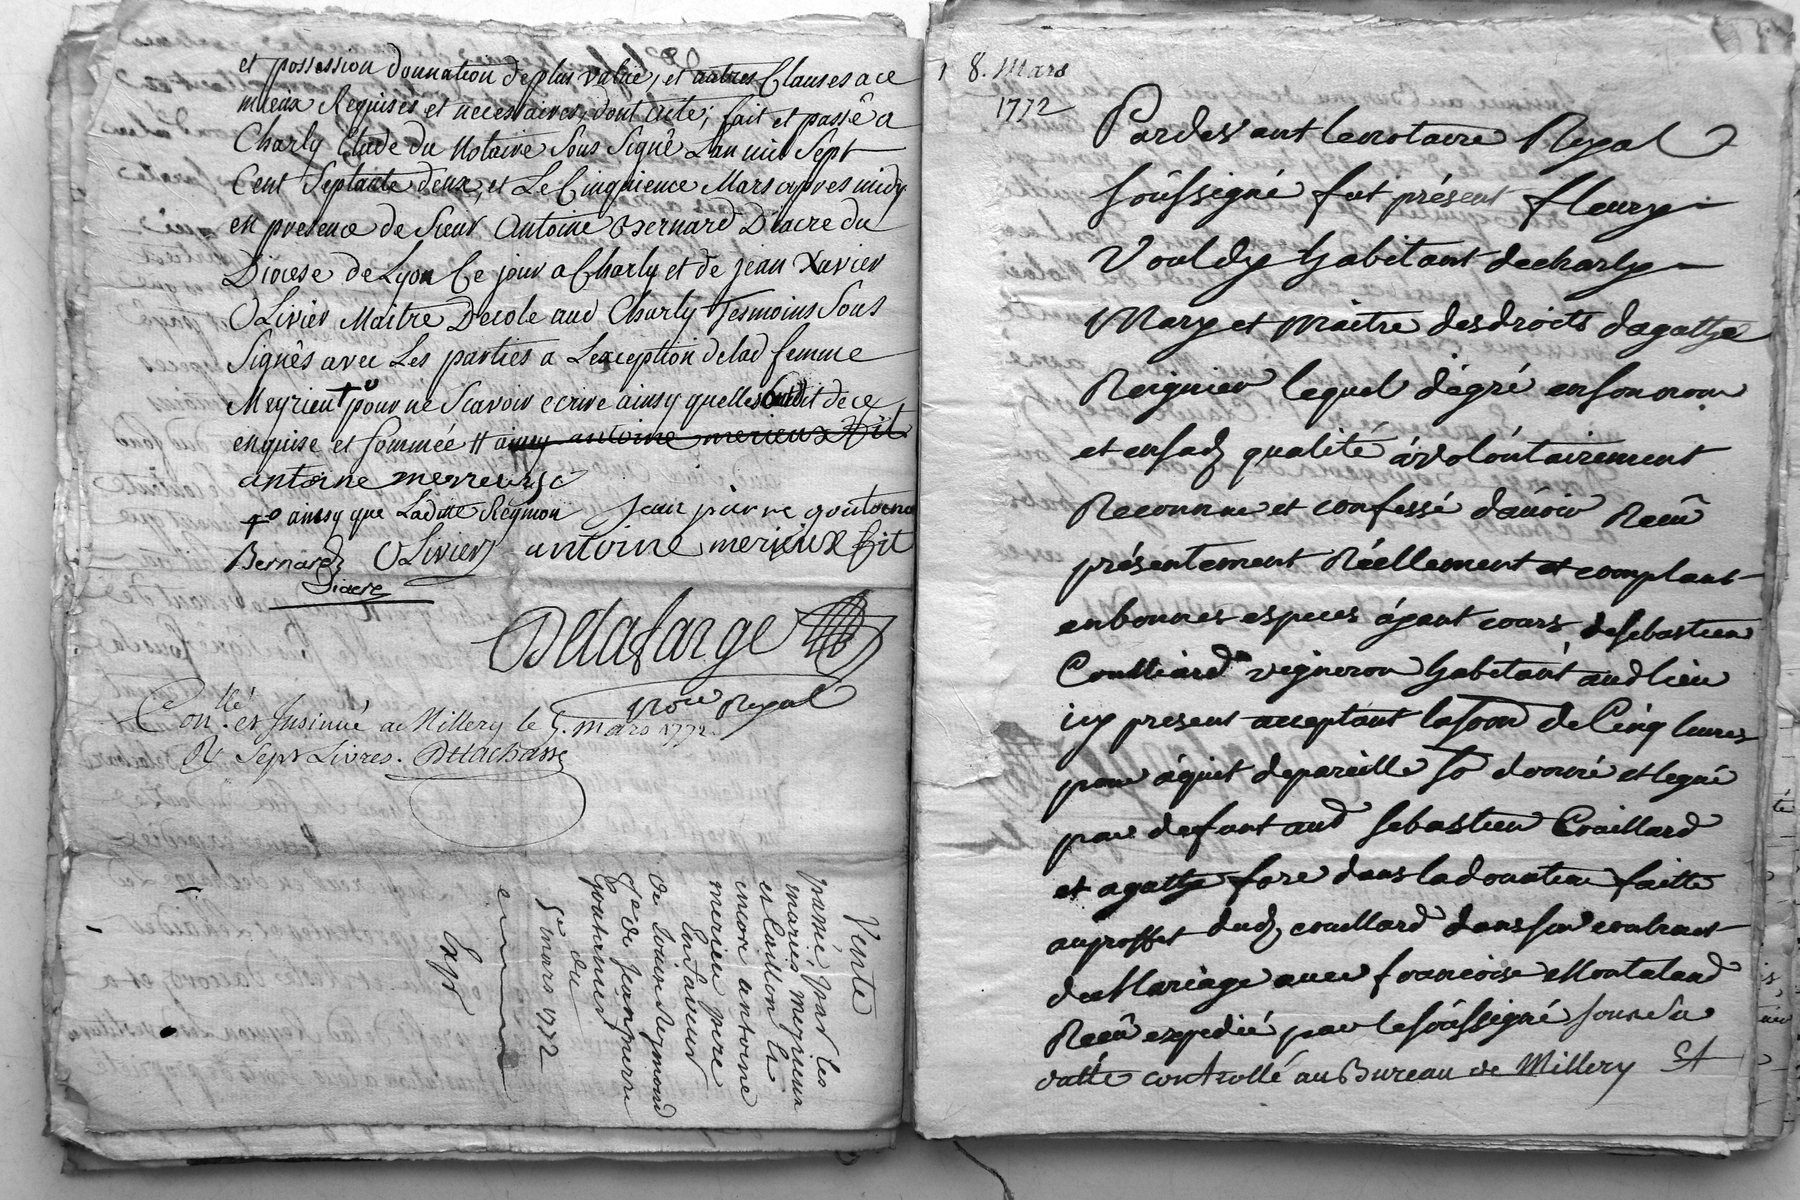 et possession donnation de plus value, et autres Clauses a ce
mieux Requises et necessaires, dont acte; fait et passé a
Charly Etude du Notaire Sous Signé Lan mil Sept
Cent Septante deux, et Le Cinquieme Mars apres midy
en presence de Sieur Antoine Bernard Diacre du
Diocese de Lyon Ce jour a Charly et de jean Xavier
Olivier Maitre Decole aud Charly Tesmoins Sous
Signés avec Les parties a Lexception delad femme
Meyrieu pour ne Scavoir ecrire ainsy quelles ont dit de ce
enquise et sommée ainsy antoine merieux fit
antoine meyreu
ainsy que Ladite Reymon jean pierre goutorno
Bernard Olivier antoine merieux fit
Diacre
Delafarge
No.re Royal
Con.llé et Insinué a Millery le 5. mars 1772.
R Sept Livres. Delachasse
Vente
passé par les
mariés meyrieux
et Caillon la
encor antoine
merieu père
En faveur
de Loüise Reymond
fe de Jean pierre
goutarnet
du
5e mars 1772
Exp
8. Mars
1772
Pardevant le notaire Royal
soûssigné fut présent fleury
Vouldy habitant de charly
Mary et maitre des droits dagathe
Reignier lequel de gré en son nom
et en sad qualité à volontairement
Reconnu et confessé d'avoir Receû
présentement Réellement et comptant
en bonnes especes ayant cours de sebastien
Couilliard vigneron habitant aud lieu
icy present acceptant la som de Cinq livres
pour aquit de pareille So donné et legué
par defunt aud sebastien Couillard
et agathe fore dans la donation faitte
au proffit dud couillard dans son contract
de Mariage avec francoise Montaland
Receû expedié par le soûssigné sous sa
datte controllé au Bureau de Millery St